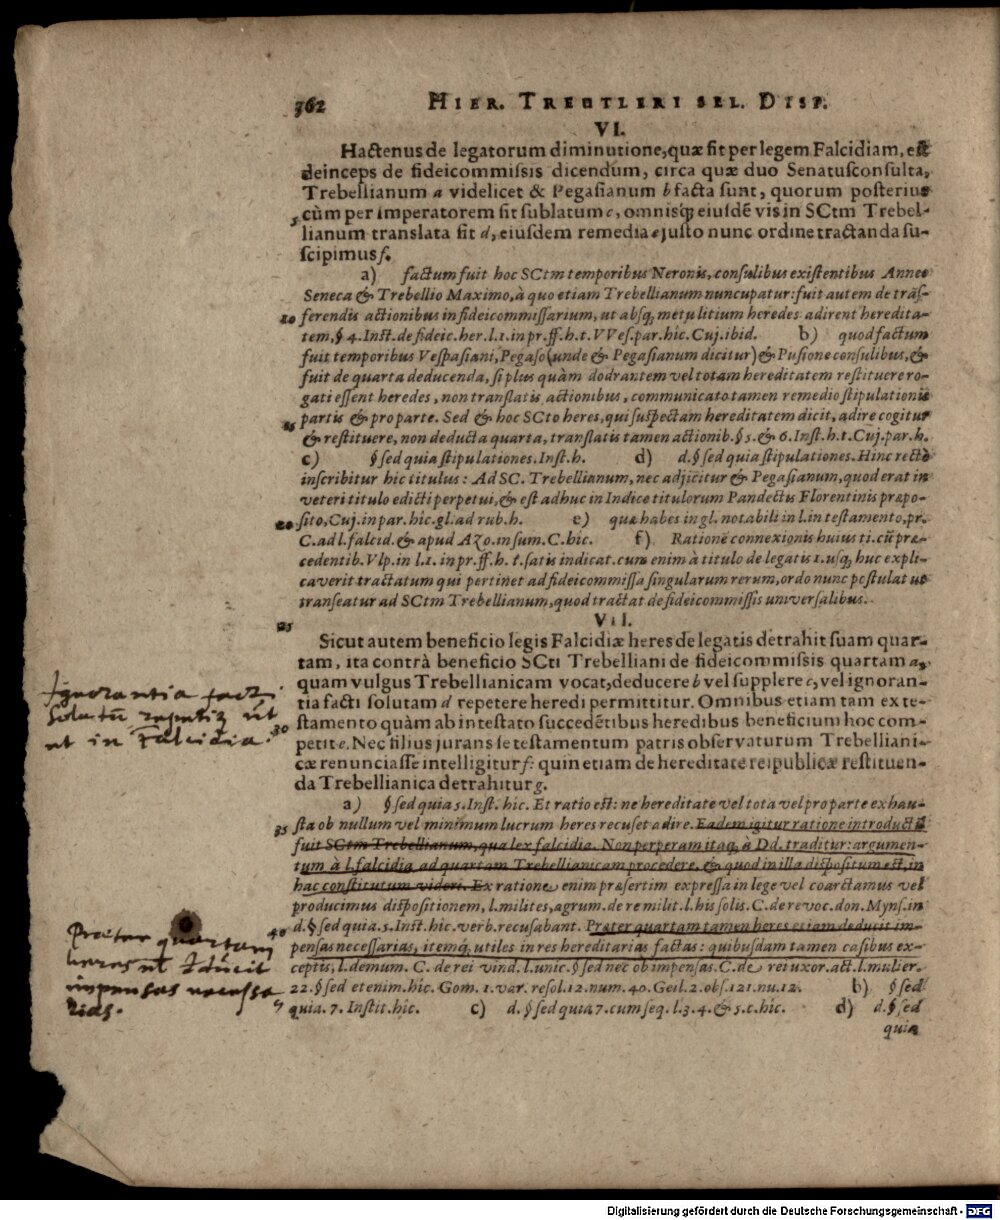 362 HIER. TREUTLERI SEL. DISP.
VI.
Hactenus de legatorum diminutione, quæ fit per legem Falcidiam, est
deinceps de fideicommissis dicendum, circa quæ duo Senatusconsulta,
Trebellianum a videlicet & Pegasianum b facta sunt, quorum posterius
5 cùm per imperatorem sit sublatum c, omnisq; eiusdē vis in SCtm Trebel-
lianum translata sit d, eiusdem remedia e justo nunc ordine tractanda su-
scipimus f.
a) factum fuit hoc SCtm temporibus Neronis, consulibus existentibus Anneo
Seneca & Trebellio Maximo, à quo etiam Trebellianum nuncupatur: fuit autem de trāsf-
10 ferendis actionibus in fideicommissarium, ut absq; metu litium heredes adirent heredita-
tem, § 4. Inst. de fideic. her. l. 1. in pr. ff. h. t. VVes. par. hic. Cuj. ibid. b) quod factum
fuit temporibus Vespasiani, Pegaso (unde & Pegasianum dicitur) & Pusione consulibus, &
fuit de quarta deducenda, si plus quàm dodrantem vel totam hereditatem restituere ro-
gati essent heredes, non translatis actionibus, communicato tamen remedio stipulationis
15 partis & pro parte. Sed & hoc SCto heres, qui suspectam hereditatem dicit, adire cogitur
& restituere, non deducta quarta, translatis tamen actionib. § 5. & 6. Inst. h. t. Cuj. par. h.
c) § sed quia stipulationes. Inst. h. d) d. § sed quia stipulationes. Hinc rectè
inscribitur hic titulus: Ad SC. Trebellianum, nec adjicitur & Pegasianum, quod erat in
veteri titulo edicti perpetui, & est adhuc in Indice titulorum Pandectis Florentinis præpo-
20 sito, Cuj. in par. hic. gl. ad rub. h. e) quæ habes in gl. notabili in l. in testamento, pr.
C. ad l. falcid. & apud Azo. in sum. C. hic. f) Rationē connexionis huius ti. cū præ-
cedentib. Vlp. in l. 1. in pr. ff. h. t. satis indicat. cum enim à titulo de legatis 1. usq; huc expli-
caverit tractatum qui pertinet ad fideicommissa singularum rerum, ordo nunc postulat ut
transeatur ad SCtm Trebellianum, quod tractat de fideicommissis universalibus.
25 VII.
Sicut autem beneficio legis Falcidiæ heres de legatis detrahit suam quar-
tam, ita contrà beneficio SCti Trebelliani de fideicommissis quartam a,
quam vulgus Trebellianicam vocat, deducere b vel supplere c, vel ignoran-
tia facti solutam d repetere heredi permittitur. Omnibus etiam tam ex te-
30 stamento quàm ab intestato succedētibus heredibus beneficium hoc com-
petit e. Nec filius jurans se testamentum patris observaturum Trebelliani-
cæ renunciasse intelligitur f: quin etiam de hereditate reipublicæ restituen-
da Trebellianica detrahitur g.
Ignorantia facti
solutū repetit ut
ut in Falcidia.
a) § sed quia 5. Inst. hic. Et ratio est: ne hereditate vel tota vel pro parte exhau-
35 sta ob nullum vel minimum lucrum heres recuset adire. Eadem igitur ratione introductū
fuit SCtm Trebellianum, qua lex falcidia. Non perperam itaq; à Dd. traditur: argumen-
tum à l. falcidia ad quartam Trebellianicam procedere, & quod in illa dispositum est, in
hac constitutum videri. Ex ratione enim præsertim expressa in lege vel coarctamus vel
producimus dispositionem, l. milites, agrum. de re milit. l. his solis. C. de revoc. don. Myns. in
40 d. § sed quia. 5. Inst. hic. verb. recusabant. Præter quartam tamen heres etiam deducit im-
pensas necessarias, itemq; utiles in res hereditarias factas: quibusdam tamen casibus ex-
ceptis, l. demum. C. de rei vind. l. unic. § sed nec ob impensas. C. de rei uxor. act. l. mulier.
22. § sed etenim. hic. Gom. 1. var. resol. 12. num. 40. Geil. 2. obs. 121. nu. 12. b) § sed
quia. 7. Instit. hic. c) d. § sed quia 7. cum seq. l. 3. 4. & 5. c. hic. d) d. § sed
quia
Præter quartam
heres deducit
impensas necessa
rias.
Digitalisierung gefördert durch die Deutsche Forschungsgemeinschaft - DFG